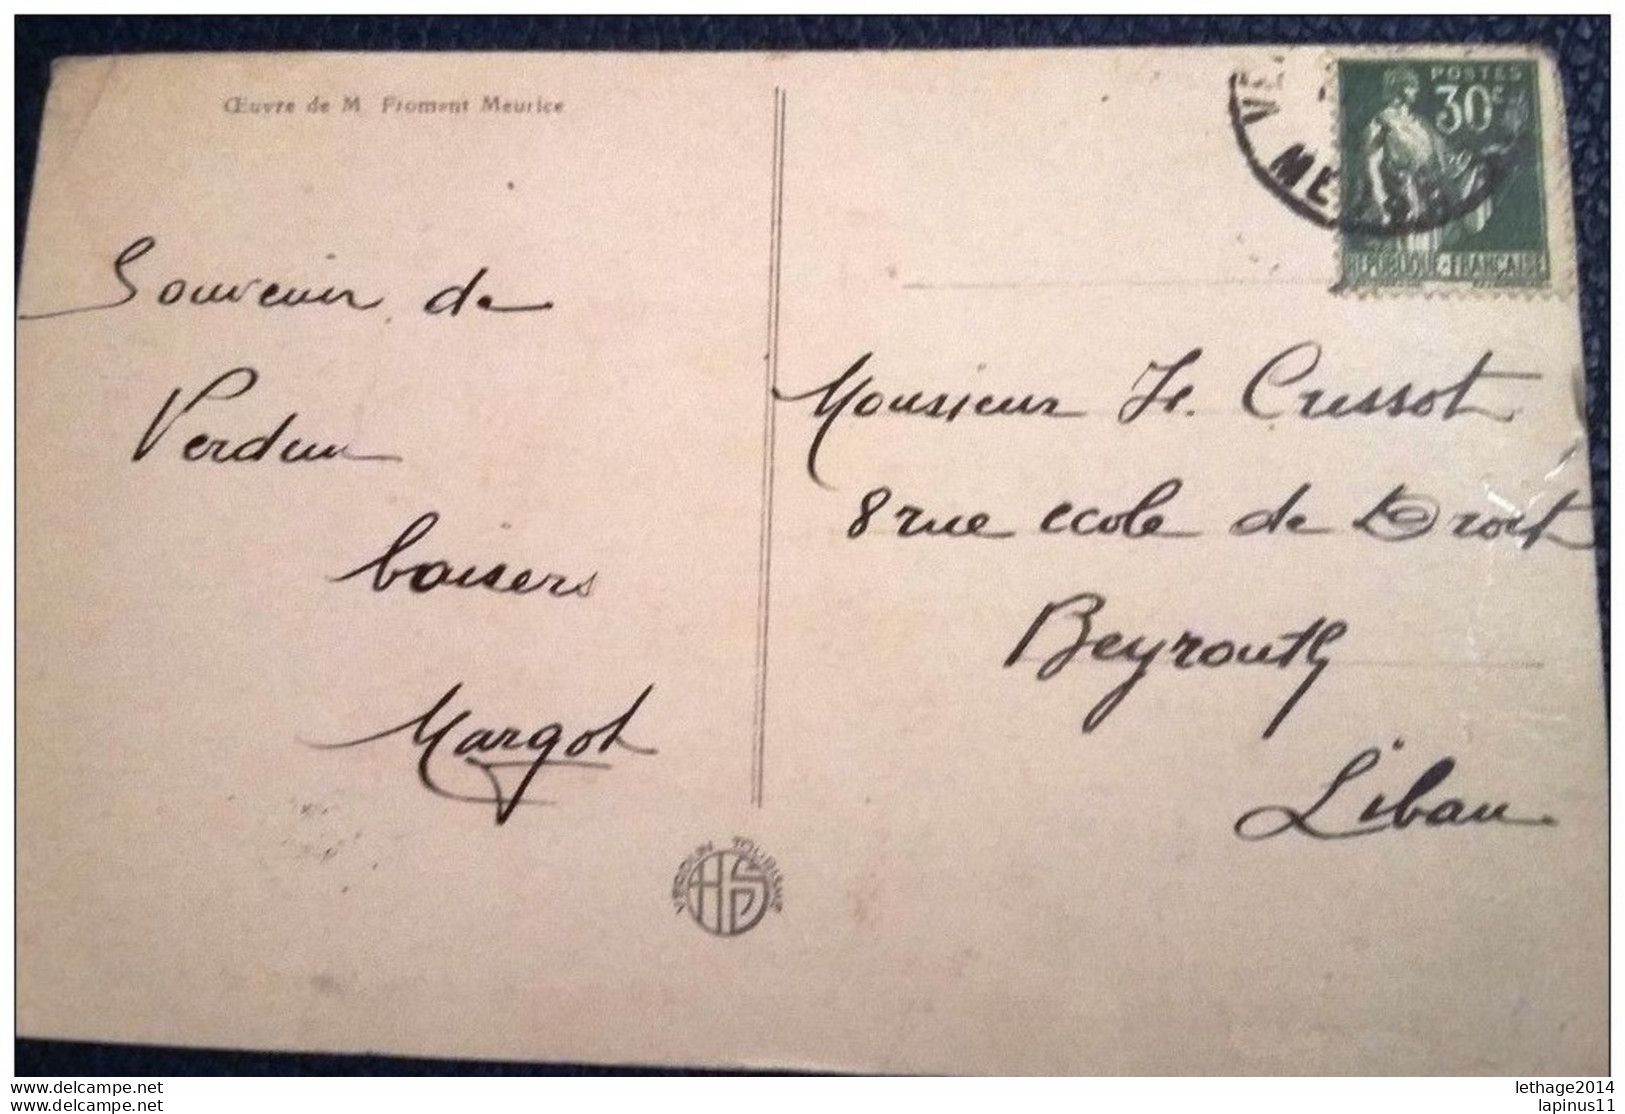 Œuvre de M. Froment Meurice
Souvenir de
Verdun
baisers
Margot
POSTES
30c
REPUBLIQUE FRANÇAISE
Monsieur H. Cressot
8 rue ecole de Droit
Beyrouth
Liban
HS
delcampe.net
delcampe.net
lethage2014
lapinus11